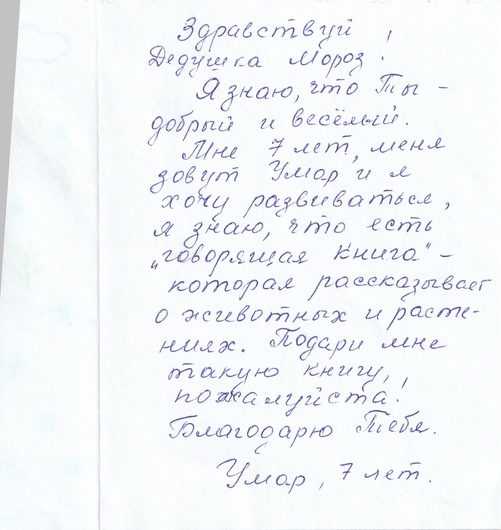 Здравствуй,
Дедушка Мороз.
Я знаю, что Ты -
добрый и весёлый.
Мне 7 лет, меня
зовут Умар и я
хочу развиваться,
я знаю, что есть
„говорящая книга" -
которая рассказывает
о животных и расте-
ниях. Подари мне
такую книгу,
пожалуйста!
Благодарю Тебя.
Умар, 7 лет.